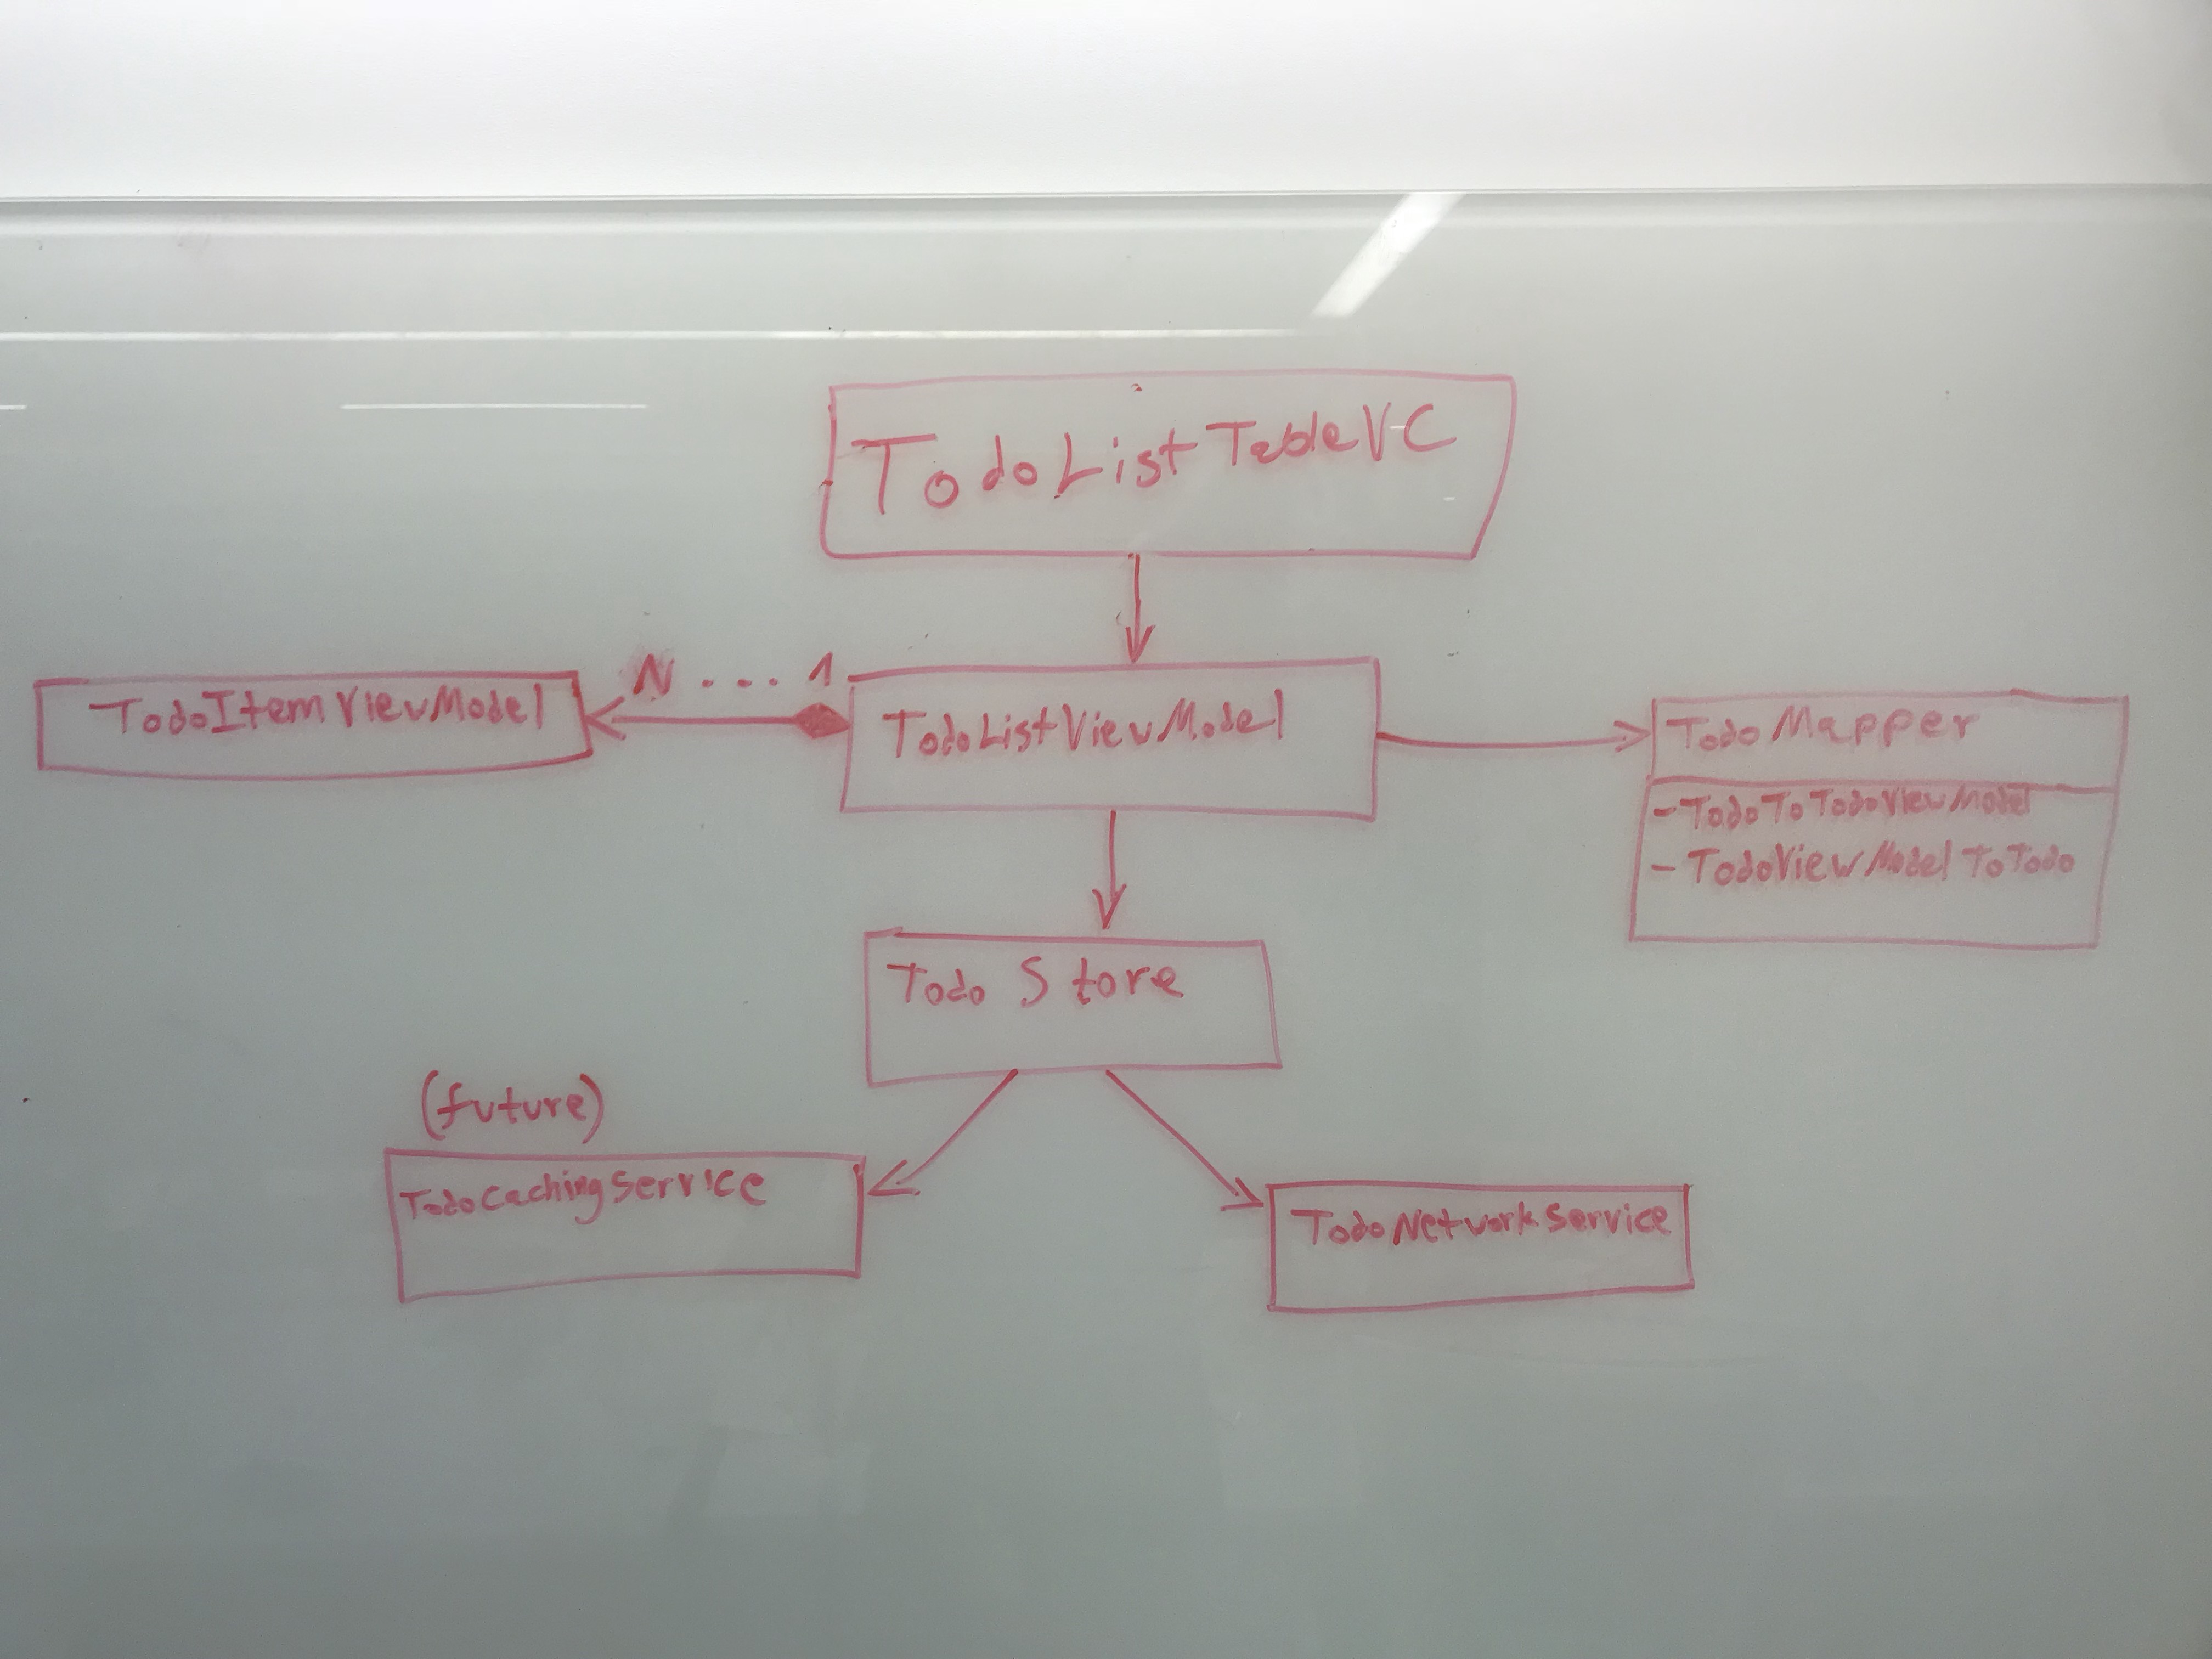 TodoListTableVC
N...1
TodoItemViewModel
TodoListViewModel
TodoMapper
-TodoToTodoViewModel
-TodoViewModelToTodo
Todo Store
(future)
TodoCachingService
TodoNetworkService